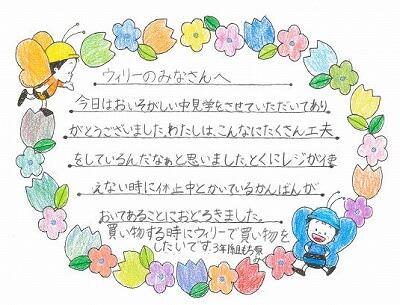 ウィリーのみなさんへ
今日はおいそがしい中見学をさせていただいてあり
がとうございました。わたしは、こんなにたくさん工夫
をしているんだなぁと思いました。とくにレジが使
えない時に休止中とかいているかんばんが
おいてあることにおどろきました。
買い物する時にウィリーで買い物を
したいです。3年1組